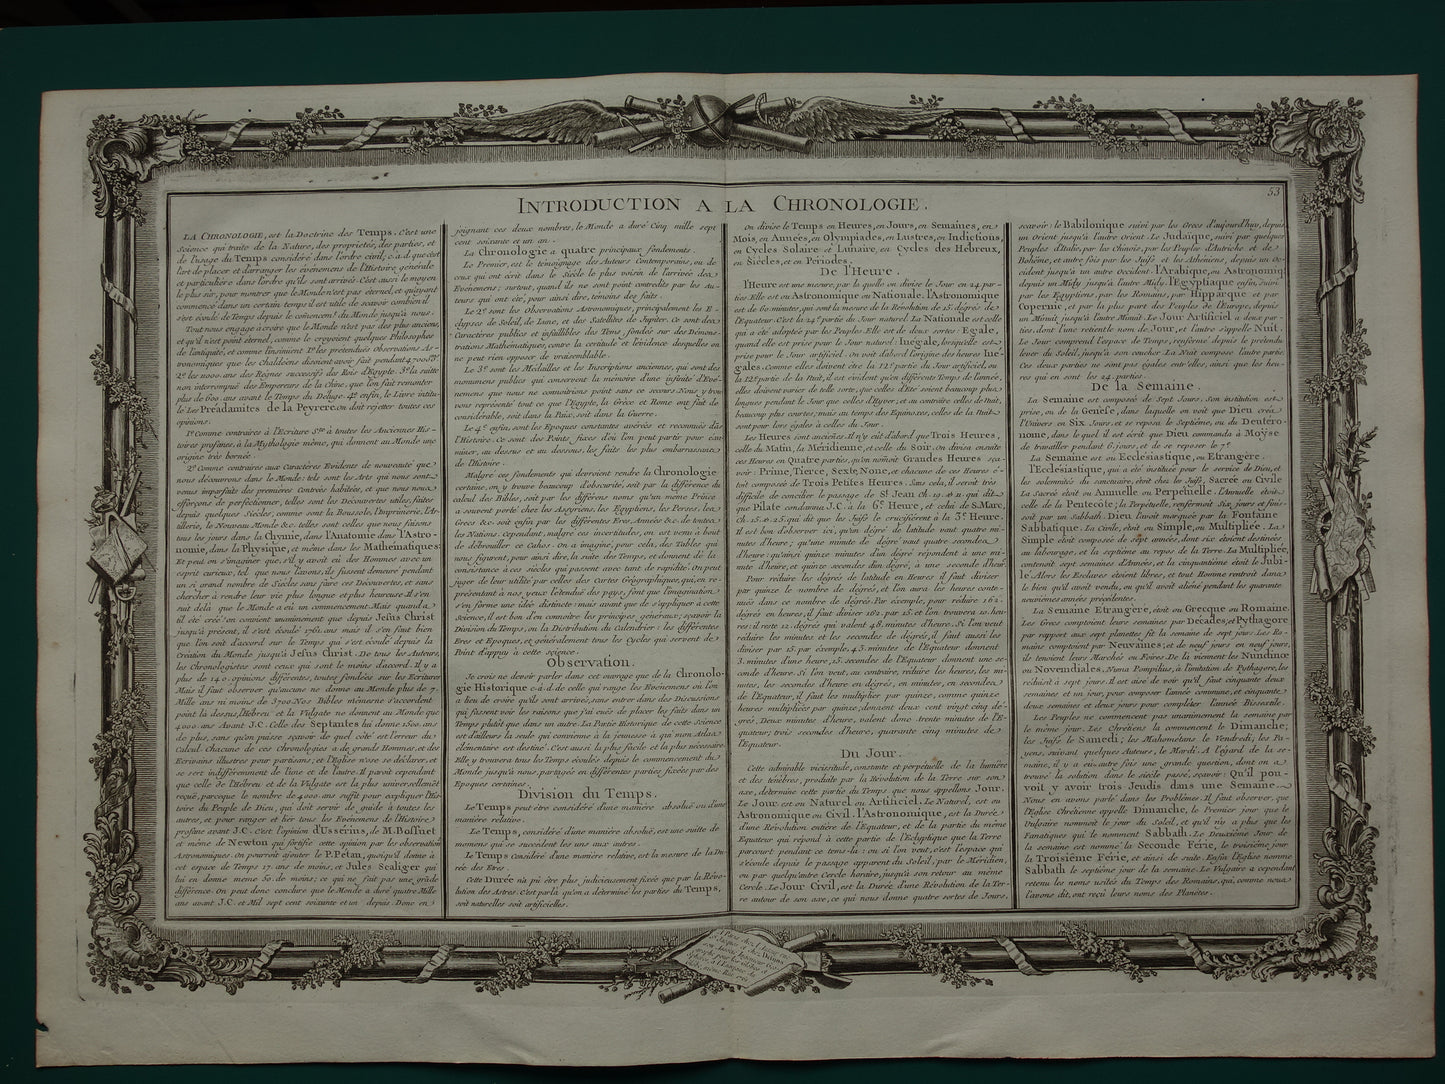 53
INTRODUCTION A LA CHRONOLOGIE.
LA CHRONOLOGIE, est la Doctrine des Temps. C'est une
Science qui traite de la Nature, des proprietés, des parties, et
de l'usage du Temps considéré dans l'ordre civil; c.a.d. que c'est
l'art de placer et d'arranger les évenemens de l'Histoire générale
et particuliere dans l'ordre qu'ils sont arrivés. C'est aussi le moyen
le plus sûr, pour montrer que le Monde n'est pas éternel, et qu'ayant
commencé dans un certain temps il est utile de sçavoir combien il
s'est écoulé de Temps depuis le coñencem.t du Monde jusqu'à nous.
Tout nous engage à croire que le Monde n'est pas des plus anciens,
et qu'il n'est point eternel, comme le croyoient quelques Philosophes
de l'antiquité, et comme l'insinuent 1.º les prétendues Observations As-
tronomiques que les Chaldéens disoient avoir fait pendant 4700 ans.
2.º les 10000. ans des Regnes successifs des Rois d'Egypte. 3.º la suitte
non interrompuë des Empereurs de la Chine, que l'on fait remonter
plus de 600. ans avant le Temps du Deluge. 4.º enfin, le Livre intitu-
lé Les Préadamites de la Peyrere on doit rejetter toutes ces
opinions.
1.º Comme contraires à l'Ecriture S.te à toutes les Anciennes His-
toires profanes, à la Mythologie même, qui donnent au Monde une
origine très bornée.
2.º Comme contraires aux Caractères Evidents de nouveauté que
nous découvrons dans le Monde: tels sont les Arts qui nous sont
venus imparfaits des premières Contrées habitées, et que nous nous
efforçons de perfectionner, telles sont les Découvertes utiles, faites
depuis quelques Siécles, comme sont la Boussole, l'Imprimerie, l'Ar-
tillerie, le Nouveau Monde &c. telles sont celles que nous faisons
tous les jours dans la Chymie, dans l'Anatomie dans l'Astro-
nomie, dans la Physique, et même dans les Mathématiques:
Et peut on s'imaginer que, s'il y avoit eû des Hommes avec un
esprit curieux, tel que nous l'avons, ils fussent demeurés pendant
un si grand nombre de Siécles sans faire ces Découvertes, et sans
chercher à rendre leur vie plus longue et plus heureuse. Il s'en
suit delà que le Monde a eû un commencement. Mais quand a
t'il eté creé? on convient unanimement que depuis Jesus Christ
jusqu'à présent, il s'est écoulé 1761. ans mais il s'en faut bien
que l'on soit d'accord sur le Temps qui s'est écoulé depuis la
Création du Monde jusqu'à Jesus Christ. De tous les Auteurs,
les Chronologistes sont ceux qui sont le moins d'accord. Il y a
plus de 140. opinions différentes, toutes fondées sur les Ecritures
Mais il faut observer qu'aucune ne donne au Monde plus de 7.
Mille ans ni moins de 3700. Nos Bibles même ne s'accordent
point là dessus, l'Hebreu et la Vulgate ne donnent au Monde que
4000 ans Avant J.C. Celle des Septantes lui donne 1500. ans
de plus, sans qu'on puisse sçavoir de quel côté est l'erreur du
Calcul. Chacune de ces Chronologies a de grands Hommes, et des
Ecrivains illustres pour partisans; et l'Eglise n'ose se déclarer, et
se sert indifféremment de l'une et de l'autre. Il paroit cependant
que celle de l'Hébreu et de la Vulgate est la plus universellemēt
reçuë, parceque le nombre de 4000. ans suffit pour expliquer l'His-
toire du Peuple de Dieu, qui doit servir de guide à toutes les
autres, et pour ranger et lier tous les Evenemens de l'Histoire
profane avant J.C. C'est l'opinion d'Usserius, de M. Bossuet
et même de Newton qui fortifie cette opinion par les observations
Astronomiques. On pourroit ajouter le P. Petau, quoiqu'il donne à
cet espace de Temps 17. ans de moins, et Jules Scaliger qui
lui en donne même 50. de moins; ce qui ne fait pas une grāde
différence. On peut donc conclure que le Monde à duré quatre Mille
ans avant J.C. et Mil sept cent soixante et un depuis. Donc en
joignant ces deux nombres, le Monde a duré Cinq mille sept
cent soixante et un an.
La Chronologie a quatre principaux fondements.
Le Premier, est le témoignage des Auteurs Contemporains, ou de
ceux qui ont écrit dans le Siècle le plus voisin de l'arrivée des
Evénemens; surtout, quand ils ne sont point contredits par les Au-
teurs qui ont été, pour ainsi dire, témoins des faits.
Le 2.e sont les Observations Astronomiques, principalement les E-
clypses de Soleil, de Lune, et des Satellites de Jupiter. Ce sont des
Caractères publics et infaillibles des Tems, fondés sur des Démons-
trations Mathématiques, contre la certitude et l'évidence desquelles on
ne peut rien opposer de vraisemblable.
Le 3.e sont les Medailles et les Inscriptions anciennes, qui sont des
monumens publics qui conservent la mémoire d'une infinité d'Evé-
nemens que nous ne connoitrions point sans ce secours. Nous y trou-
vons représenté tout ce que l'Egypte, la Gréce et Rome ont fait de
considérable, soit dans la Paix, soit dans la Guerre.
Le 4.e enfin, sont les Epoques constantes avérées et reconnuës dās
l'Histoire. Ce sont des Points fixes d'où l'on peut partir pour exa-
miner, au dessus et au dessous, les faits les plus embarrassans
de l'Histoire.
Malgré ces fondements qui devroient rendre la Chronologie
certaine, on y trouve beaucoup d'obscurité, soit par la différence du
calcul des Bibles, soit par les différens noms qu'un même Prince
a souvent porté chez les Assyriens, les Egyptiens, les Perses, les
Grecs &c. soit enfin par les différentes Eres, Années &c. de toutes
les Nations. Cependant, malgré ces incertitudes, on est venu à bout
de débrouiller ce Cahos. On a imaginé, pour cela, des Tables qui
nous figurent, pour ainsi dire, la suite des Temps, et donnent de la
consistance à ces siécles qui passent avec tant de rapidité. On peut
juger de leur utilité par celles des Cartes Géographiques, qui, en re-
présentant à nos yeux l'étenduë des pays, font que l'imagination
s'en forme une idée distincte: mais avant que de s'appliquer à cette
Science, il est bon d'en connoitre les principes généraux; sçavoir la
Division du Temps, ou la Distribution du Calendrier: les différentes
Eres et Epoques, et généralement tous les Cycles qui servent de
Point d'appui à cette science.
Observation.
Je crois ne devoir parler dans cet ouvrage que de la Chronolo-
gie Historique c-à-d. de celle qui range les Evénemens où l'on
a lieu de croire qu'ils sont arrivés, sans entrer dans des Discussions
qui fassent voir les raisons que j'ai eues de placer les faits dans un
Temps plutôt que dans un autre. La Partie Historique de cette Science
est d'ailleurs la seule qui convienne à la jeunesse à qui mon Atlas
élémentaire est destiné. C'est aussi la plus facile et la plus necessaire.
Elle y trouvera tous les Temps écoulés depuis le commencement du
Monde jusqu'à nous partagés en différentes parties fixées par des
Epoques certaines.
Division du Temps.
Le Temps peut être considéré d'une manière absoluë ou d'une
manière relative.
Le Temps, considéré d'une manière absoluë, est une suite de
momens qui se succedent les uns aux autres.
Le Temps Considéré d'une manière relative, est la mesure de la Du-
rée des Etres.
Cette Durée n'a pû être plus judicieusement fixée que par la Révo-
lution des Astres. C'est par là qu'on a déterminé les parties du Temps,
soit naturelles soit artificielles.
On divise le Temps en Heures, en Jours, en Semaines, en
Mois, en Années, en Olympiades, en Lustres, en Indictions,
en Cycles Solaire et Lunaire, en Cycles des Hébreux,
en Siécles, et en Périodes.
De l'Heure.
l'Heure est une mesure, par la quelle on divise le Jour en 24. par-
ties. Elle est ou Astronomique ou Nationale. l'Astronomique
est de 60. minutes, qui sont la mesure de la Révolution de 15. degrés de
l'Equateur. C'est la 24.e partie du Jour naturel. La Nationale est celle
qui a été adoptée par les Peuples. Elle est de deux sortes: Egale,
quand elle est prise pour le Jour naturel: Inégale, lorsqu'elle est
prise pour le Jour artificiel. On voit d'abord l'origine des heures Iné-
gales. Comme elles doivent être la 12.e partie du Jour artificiel, ou
la 12.e partie de la Nuit, il est évident qu'en différents Temps de l'année,
elles doivent varier de telle sorte, que celles d'Eté soient beaucoup plus
longues pendant le Jour que celles d'Hyver; et au contraire celles de nuit
beaucoup plus courtes; mais au temps des Equinoxes, celles de la Nuit
sont pour lors égales à celles du Jour.
Les Heures sont anciennes. Il n'y eût d'abord que Trois Heures,
celle du Matin, la Méridienne, et celle du Soir. On divisa ensuite
ces Heures en Quatre parties, qu'on nomoit Grandes Heures sça-
voir: Prime, Tierce, Sexte, None, et chacune de ces Heures é-
toit composée de Trois Petites Heures. Sans cela, il seroit très
difficile de concilier le passage de St. Jean Ch. 19. ℣. 11. qui dit
que Pilate condamna J.C. à la 6.e Heure, et celui de S. Marc,
Ch. 15. ℣. 25. qui dit que les Juifs le crucifièrent à la 3.e Heure.
Il est bon d'observer ici, qu'un dégré de latitude vaut quatre mi-
nutes d'heure; qu'une minute de dégré vaut quatre secondes
d'heure: qu'ainsi quinze minutes d'un dégré répondent à une mi-
nute d'heure, et quinze secondes d'un dégré, à une seconde d'heur.
Pour réduire les dégrés de latitude en Heures il faut diviser
par quinze le nombre de dégrés, et l'on aura les heures conte-
nuës dans ce nombre de dégrés. Par exemple, pour réduire 162.
dégrés en heures, il faut diviser 162. par 15. et l'on trouvera 10. heu-
res: il reste 12. dégrés qui valent 48. minutes d'heure. Si l'on veut
réduire les minutes et les secondes de dégrés, il faut aussi les
diviser par 15. par exemple, 45. minutes de l'Equateur donnent
3. minutes d'une heure, 15. secondes de l'Equateur donnent une se-
conde d'heure. Si l'on veut, au contraire, réduire les heures, mi-
nutes, les secondes d'heure en dégrés, en minutes, en secondes
de l'Equateur, il faut les multiplier par quinze, comme quinze
heures multipliées par quinze, donnent deux cent vingt cinq dé-
grés. Deux minutes d'heure, valent donc trente minutes de l'E-
quateur; trois secondes d'heure, quarante cinq minutes de
l'Equateur.
Du Jour.
Cette admirable vicissitude, constante et perpétuelle de la lumière
et des ténèbres, produite par la Révolution de la Terre sur son
axe, détermine cette partie du Temps que nous appellons Jour.
Le Jour est ou Naturel ou Artificiel. Le Naturel, est ou
Astronomique ou Civil. l'Astronomique, est la Durée
d'une Révolution entière de l'Equateur, et de la partie du même
Equateur qui répond à cette partie de l'Eclyptique que la Terre
parcourt pendant ce tems-là: ou si l'on veut, c'est l'espace qui
s'écoule depuis le passage apparent du Soleil, par le Méridien,
ou par quelqu'autre Cercle horaire, jusqu'à son retour au même
Cercle. Le Jour Civil, est la Durée d'une Révolution de la Ter-
re autour de son axe, ce qui nous donne quatre sortes de Jours.
sçavoir: le Babilonique suivi par les Grecs d'aujourd'huy, depuis
un Orient jusqu'à l'autre Orient. Le Judaïque, suivi par quelques
Peuples d'Italie, par les Chinois, par les Peuples d'Autriche et de
Bohême, et autre fois par les Juifs et les Athéniens, depuis un Oc-
cident jusqu'à un autre Occident. l'Arabique, ou Astronomiq
depuis un Midy jusqu'à l'autre Midy. l'Egyptiaque enfin, suivi
par les Egyptiens, par les Romains, par Hipparque et par
Copernic, et par la plus part des Peuples de l'Europe, depuis
un Minuit jusqu'à l'autre Minuit. Le Jour Artificiel a deux par-
ties, dont l'une retient le nom de Jour, et l'autre s'appelle Nuit.
Le Jour comprend l'espace de Temps, renfermé depuis le prétendu
lever du Soleil, jusqu'à son coucher. La Nuit compose l'autre partie.
Ces deux parties ne sont pas égales entr'elles, ainsi que les heu-
res qui en sont les 24. parties.
De la Semaine.
La Semaine est composée de Sept Jours. Son institution est
prise, ou de la Genese, dans laquelle on voit que Dieu créa
l'Univers en Six Jours, et se reposa le Septième, ou du Deutéro-
nome, dans le quel il est écrit que Dieu commanda à Moyse
de travailler pendant 6. jours, et de se reposer le 7.e
La Semaine est ou Ecclésiastique, ou Etrangère.
l'Ecclésiastique, qui a été instituée pour le service de Dieu, et
les solemnités du sanctuaire, étoit chez les Juifs, Sacrée ou Civile
La Sacrée étoit ou Annuelle ou Perpétuelle. L'Annuelle étoit
celle de la Pentecôte; la Perpétuelle, renfermoit Six jours et finis-
soit par un Sabbath. Dieu l'avoit marquée par la Fontaine
Sabbatique. La Civile, étoit ou Simple, ou Multipliée. La
Simple étoit composée de sept années, dont six étoient destinées
au labourage, et la septième au repos de la Terre. La Multipliée,
contenoit sept semaines d'Années, et la cinquantième étoit le Jubi-
lé. Alors les Esclaves étoient libres, et tout Homme rentroit dans
le bien qu'il avoit vendu, ou qu'il avoit aliéné pendant les quarante
neuvièmes années précédentes.
La Semaine Etrangère, étoit ou Grecque ou Romaine.
Les Grecs comptoient leurs semaines par Décades, et Pythagore
par rapport aux sept planettes fit la semaine de sept jours. Les Ro-
mains comptoient par Neuvaines; et de neuf jours en neuf jours,
ils tenoient leurs Marchés ou Foires. De là viennent les Nundinæ
ou Novendiales. Numa Pompilius, à l'imitation de Pythagore, les
réduisit à sept jours. Il est aisé de voir qu'il faut cinquante deux
semaines et un jour, pour composer l'année commune, et cinquante
deux semaines et deux jours pour completer l'année Bissextile.
Les Peuples ne commencent pas unanimement la semaine par
le même jour. Les Chrétiens la commencent par le Dimanche;
les Juifs le Samedi; les Mahometans le Vendredi, les Pa-
yens, suivant quelques Auteurs, le Mardi. A l'égard de la se-
maine, il y a eû autre fois une grande question, dont on a
trouvé la solution dans le siécle passé, sçavoir: Qu'il pou-
voit y avoir trois Jeudis dans une Semaine.
Nous en avons parlé dans les Problêmes. Il faut observer, que
l'Eglise Chrétienne appelle Dimanche, le Premier jour que le
Vulgaire nommoit le jour du Soleil, et qu'il n'y a plus que les
Fanatiques qui le nomment Sabbath. Le Deuxième Jour de
la semaine est nommé la Seconde Férie, le troisième jour
la Troisième Férie, et ainsi de suite. Enfin l'Eglise nomme
Sabbath le septième jour de la semaine. Le Vulgaire a cependant
retenu les noms usités du Temps des Romains, qui, comme nous
l'avons dit, ont reçu leurs noms des Planètes.